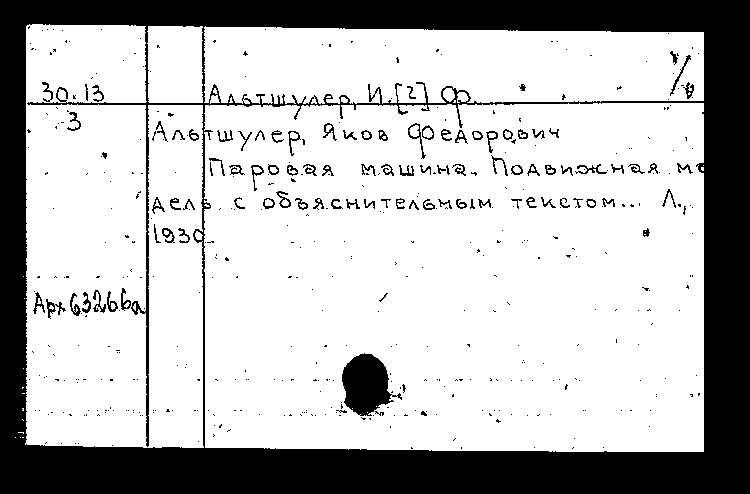 30.13 Альтшулер, И.[?] Ф.
3 Альтшулер, Яков Федорович
Паровая машина. Подвижная мо
дель с объяснительным текстом... Л.,
1930
Арх 63266а